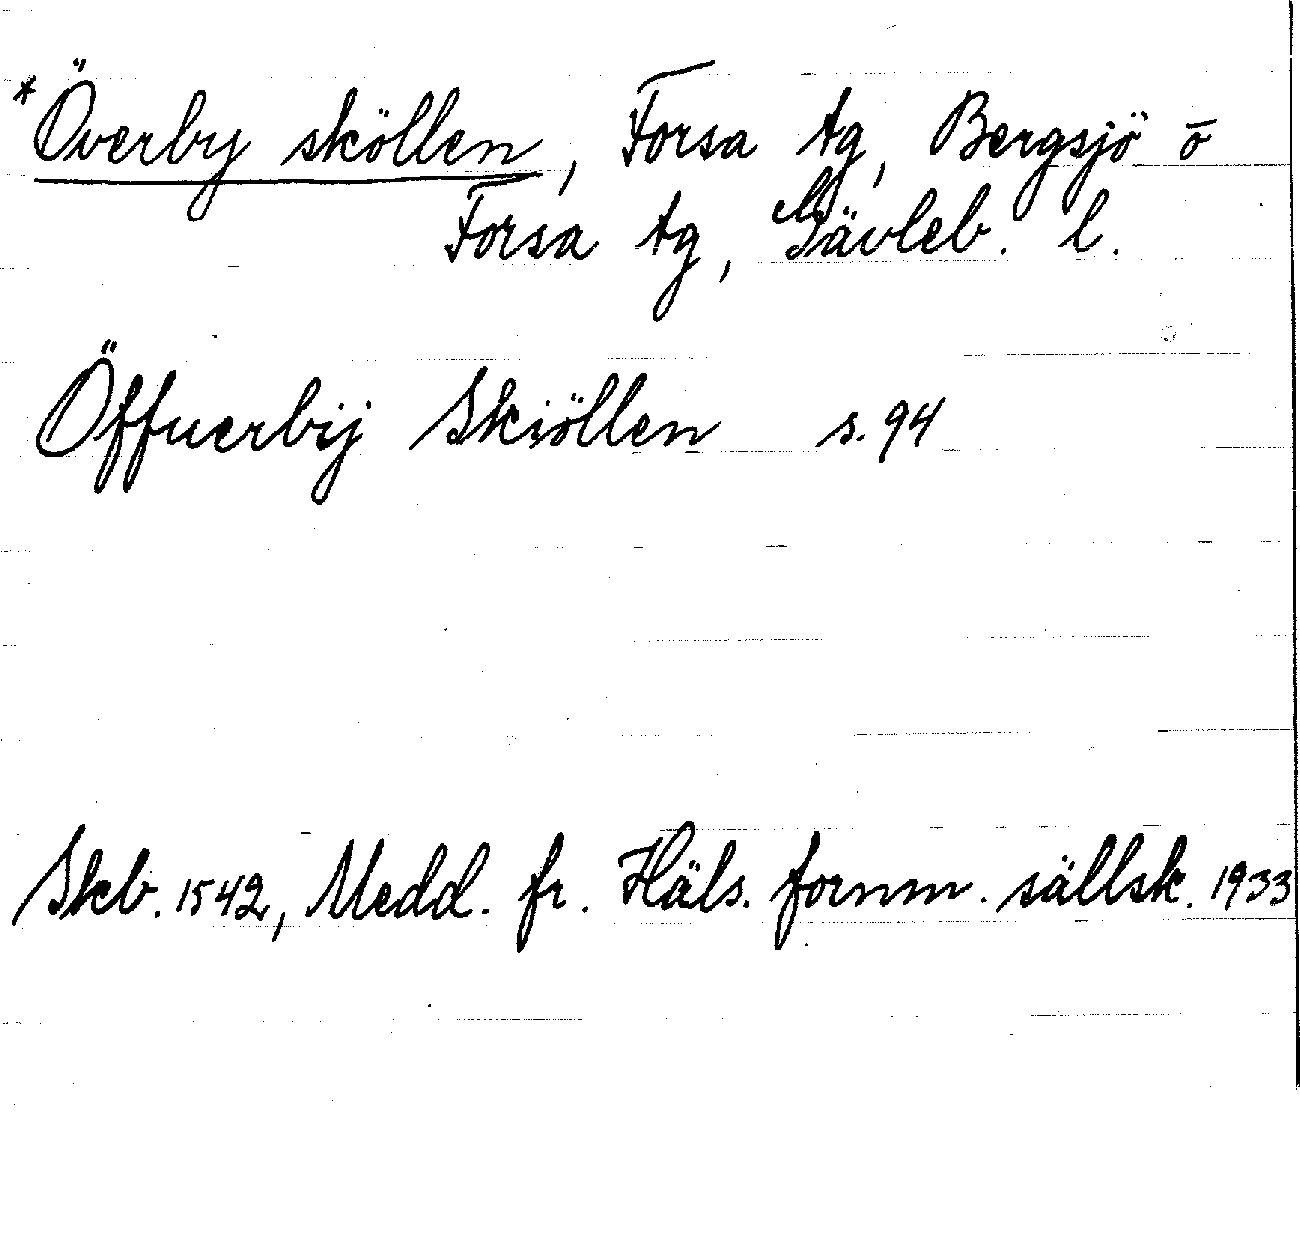 *Överby sköllen, Forsa tg, Bergsjö o
Forsa tg, Gävleb. l.
Öffuerbij Skiöllen s. 94
Skb. 1542, Medd. fr. Häls. fornm. sällsk. 1933